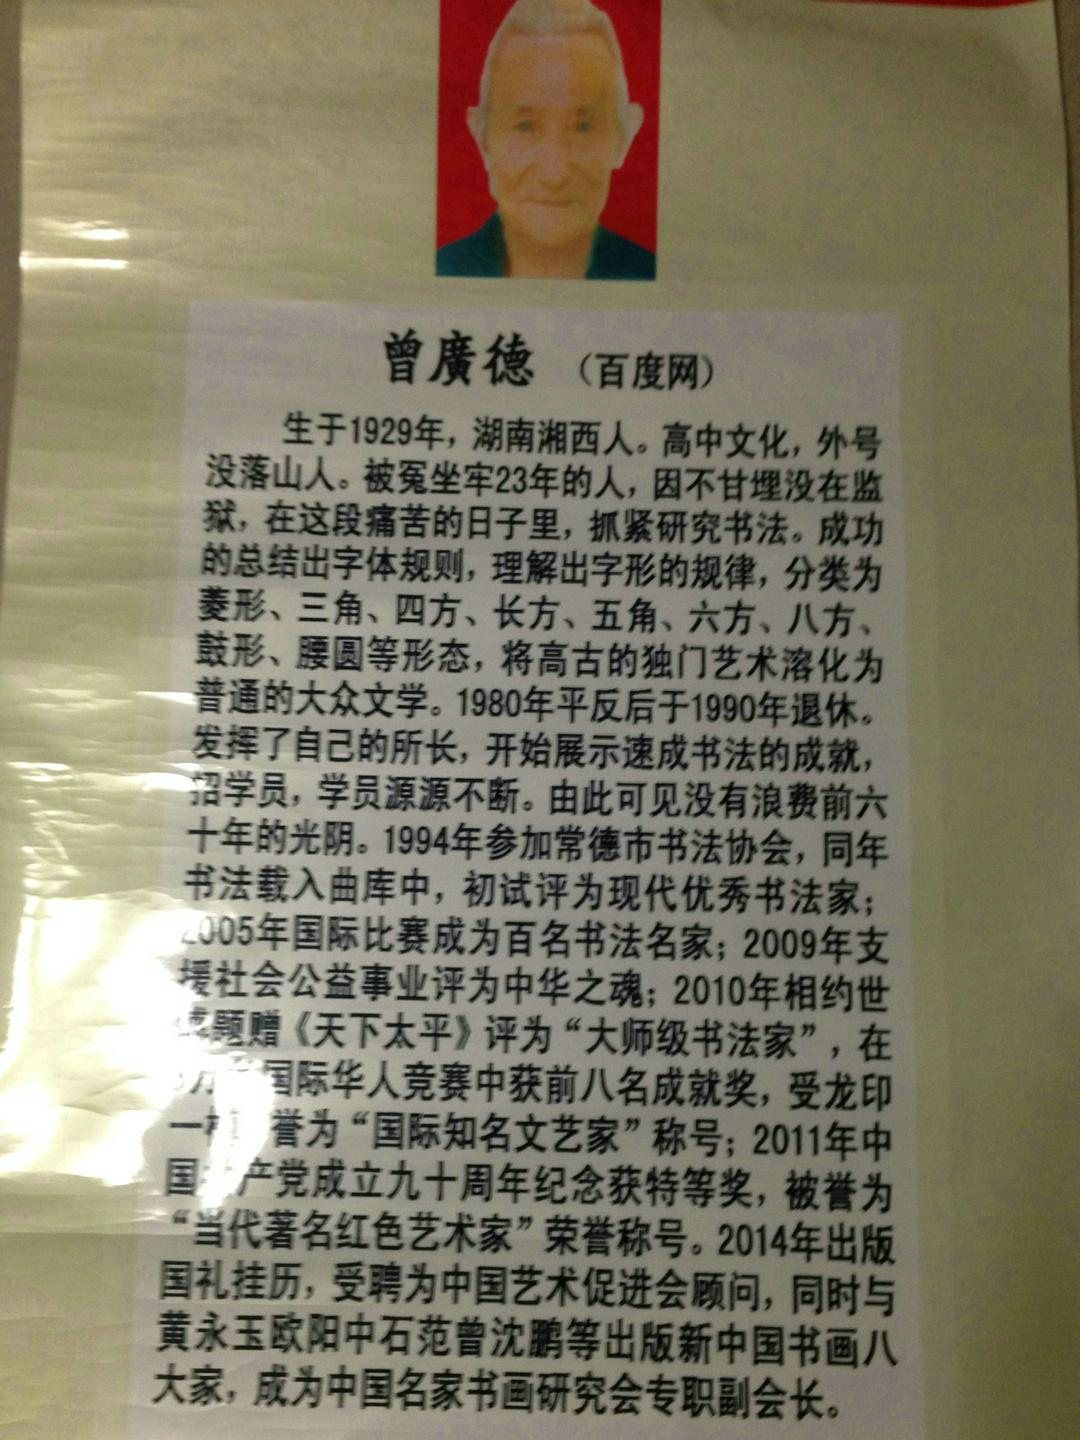 曾廣德 （百度网）
生于1929年，湖南湘西人。高中文化，外号
没落山人。被冤坐牢23年的人，因不甘埋没在监
狱，在这段痛苦的日子里，抓紧研究书法。成功
的总结出字体规则，理解出字形的规律，分类为
菱形、三角、四方、长方、五角、六方、八方、
鼓形、腰圆等形态，将高古的独门艺术溶化为
普通的大众文学。1980年平反后于1990年退休。
发挥了自己的所长，开始展示速成书法的成就，
招学员，学员源源不断。由此可见没有浪费前六
十年的光阴。1994年参加常德市书法协会，同年
书法载入曲库中，初试评为现代优秀书法家；
2005年国际比赛成为百名书法名家；2009年支
援社会公益事业评为中华之魂；2010年相约世
题赠《天下太平》评为“大师级书法家”，在
国际华人竞赛中获前八名成就奖，受龙印
一 誉为“国际知名文艺家”称号；2011年中
国 产党成立九十周年纪念获特等奖，被誉为
“当代著名红色艺术家”荣誉称号。2014年出版
国礼挂历，受聘为中国艺术促进会顾问，同时与
黄永玉欧阳中石范曾沈鹏等出版新中国书画八
大家，成为中国名家书画研究会专职副会长。